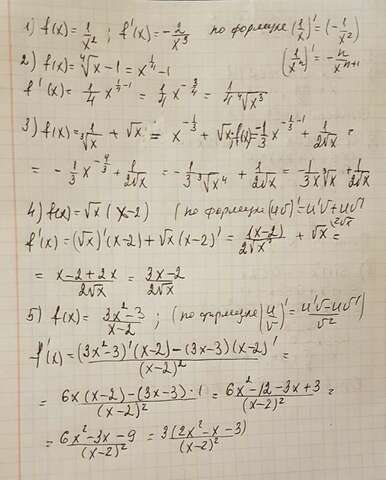 1) f(x) = 1/x²; f'(x) = -2/x³ по формуле (1/x)' = (-1/x²)
(1/xⁿ)' = -n/xⁿ⁺¹
2) f(x) = ⁴√x - 1 = x^(1/4) - 1
f'(x) = 1/4 x^(1/4 - 1) = 1/4 x^(-3/4) = 1/(4 ⁴√x³)
3) f(x) = 1/³√x + √x = x^(-1/3) + √x; f'(x) = -1/3 x^(-1/3 - 1) + 1/(2√x) =
= -1/3 x^(-4/3) + 1/(2√x) = -1/(3 ³√x⁴) + 1/(2√x) = -1/(3x ³√x) + 1/(2√x)
4) f(x) = √x (x-2) (по формуле (uv)' = u'v + uv')
f'(x) = (√x)'(x-2) + √x (x-2)' = 1(x-2)/(2√x) + √x^(2√x) =
= (x-2+2x)/(2√x) = (3x-2)/(2√x)
5) f(x) = (3x²-3)/(x-2); (по формуле (u/v)' = (u'v-uv')/v²
f'(x) = ((3x²-3)'(x-2) - (3x-3)(x-2)')/(x-2)² =
= (6x(x-2) - (3x-3)·1)/(x-2)² = (6x²-12-3x+3)/(x-2)² =
= (6x²-3x-9)/(x-2)² = 3(2x²-x-3)/(x-2)²